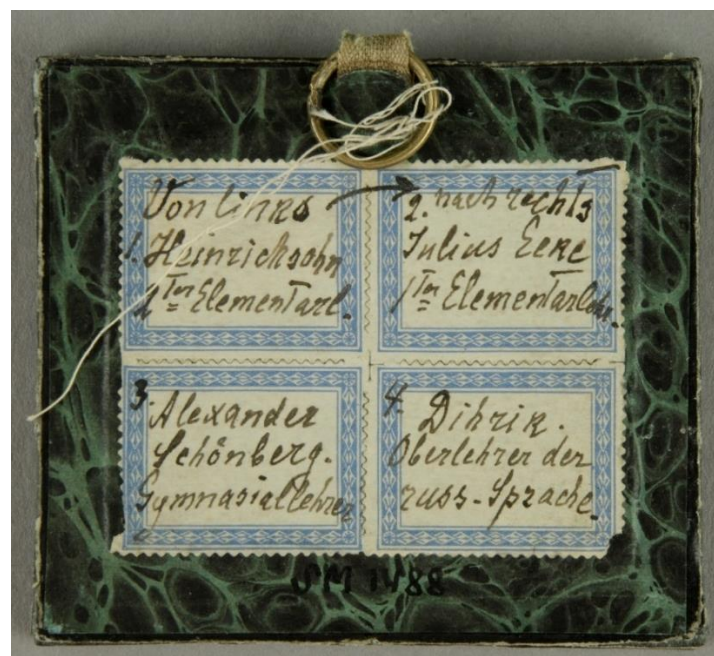 Von links →
1. Heinrichsohn
2 ter Elementarl.
2. nach rechts
Julius Ecke
1 ter Elementarlehr.
3 Alexander
Schönberg.
Gymnasiallehrer
4. Dihrik.
Oberlehrer der
russ-Sprache.
SM 1488